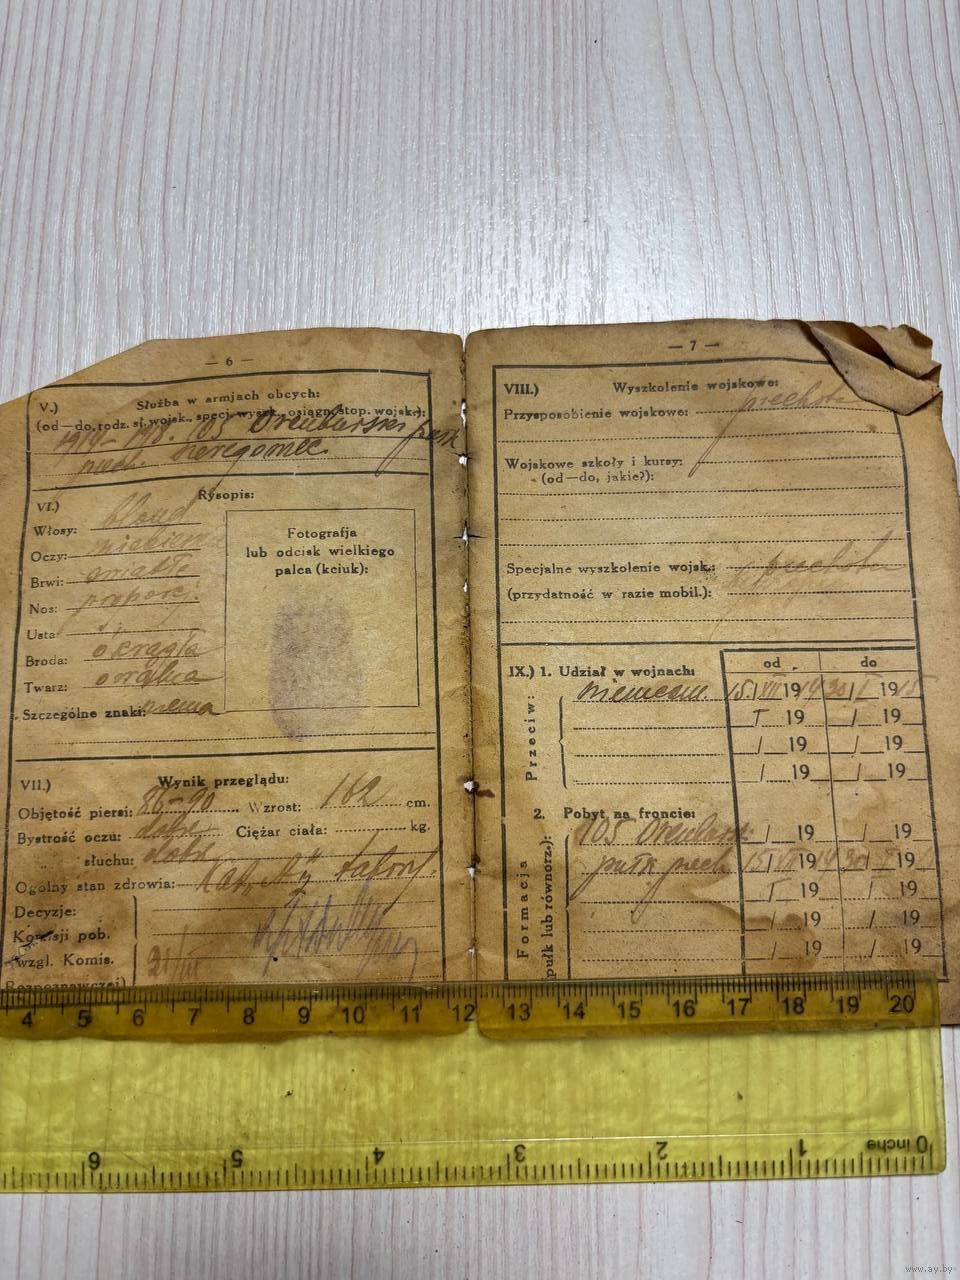 — 6 —
V.) Służba w armjach obcych:
(od—do, rodz. sł. wojsk., specj. wyszk., osiągn. stop. wojsk.):
1914 – 105 Orenburski pułk
szeregowiec
VI.) Rysopis:
Włosy: blond
Oczy: niebieskie
Brwi:
Nos:
Usta:
Broda: okrągła
Twarz: owalna
Szczególne znaki: niema
Fotografja
lub odcisk wielkiego
palca (kciuk):
VII.) Wynik przeglądu:
Objętość piersi: 86–90 Wzrost: 162 cm.
Bystrość oczu: dobr. Ciężar ciała: kg.
słuchu: dobr.
Ogólny stan zdrowia:
Decyzje:
Komisji pob.
wzgl. Komis.
Rozpoznawczej
— 7 —
VIII.) Wyszkolenie wojskowe:
Przysposobienie wojskowe: piechota
Wojskowe szkoły i kursy:
(od—do, jakie?):
Specjalne wyszkolenie wojsk.: piechota
(przydatność w razie mobil.):
IX.) 1. Udział w wojnach: od do
Przeciw: niemcom 15/VII 1914 30/ 1915
/ 19 / 19
/ 19 / 19
/ 19 / 19
2. Pobyt na froncie:
Formacja
pułk lub równorz.):
105 Orenburski / 19 / 19
pułk piech. 15/VII 1914 30/ 19
/ 19 / 19
/ 19 / 19
/ 19 / 19
4 5 6 7 8 9 10 11 12 13 14 15 16 17 18 19 20
6 5 4 3 2 1 0 inche
www.ay.by